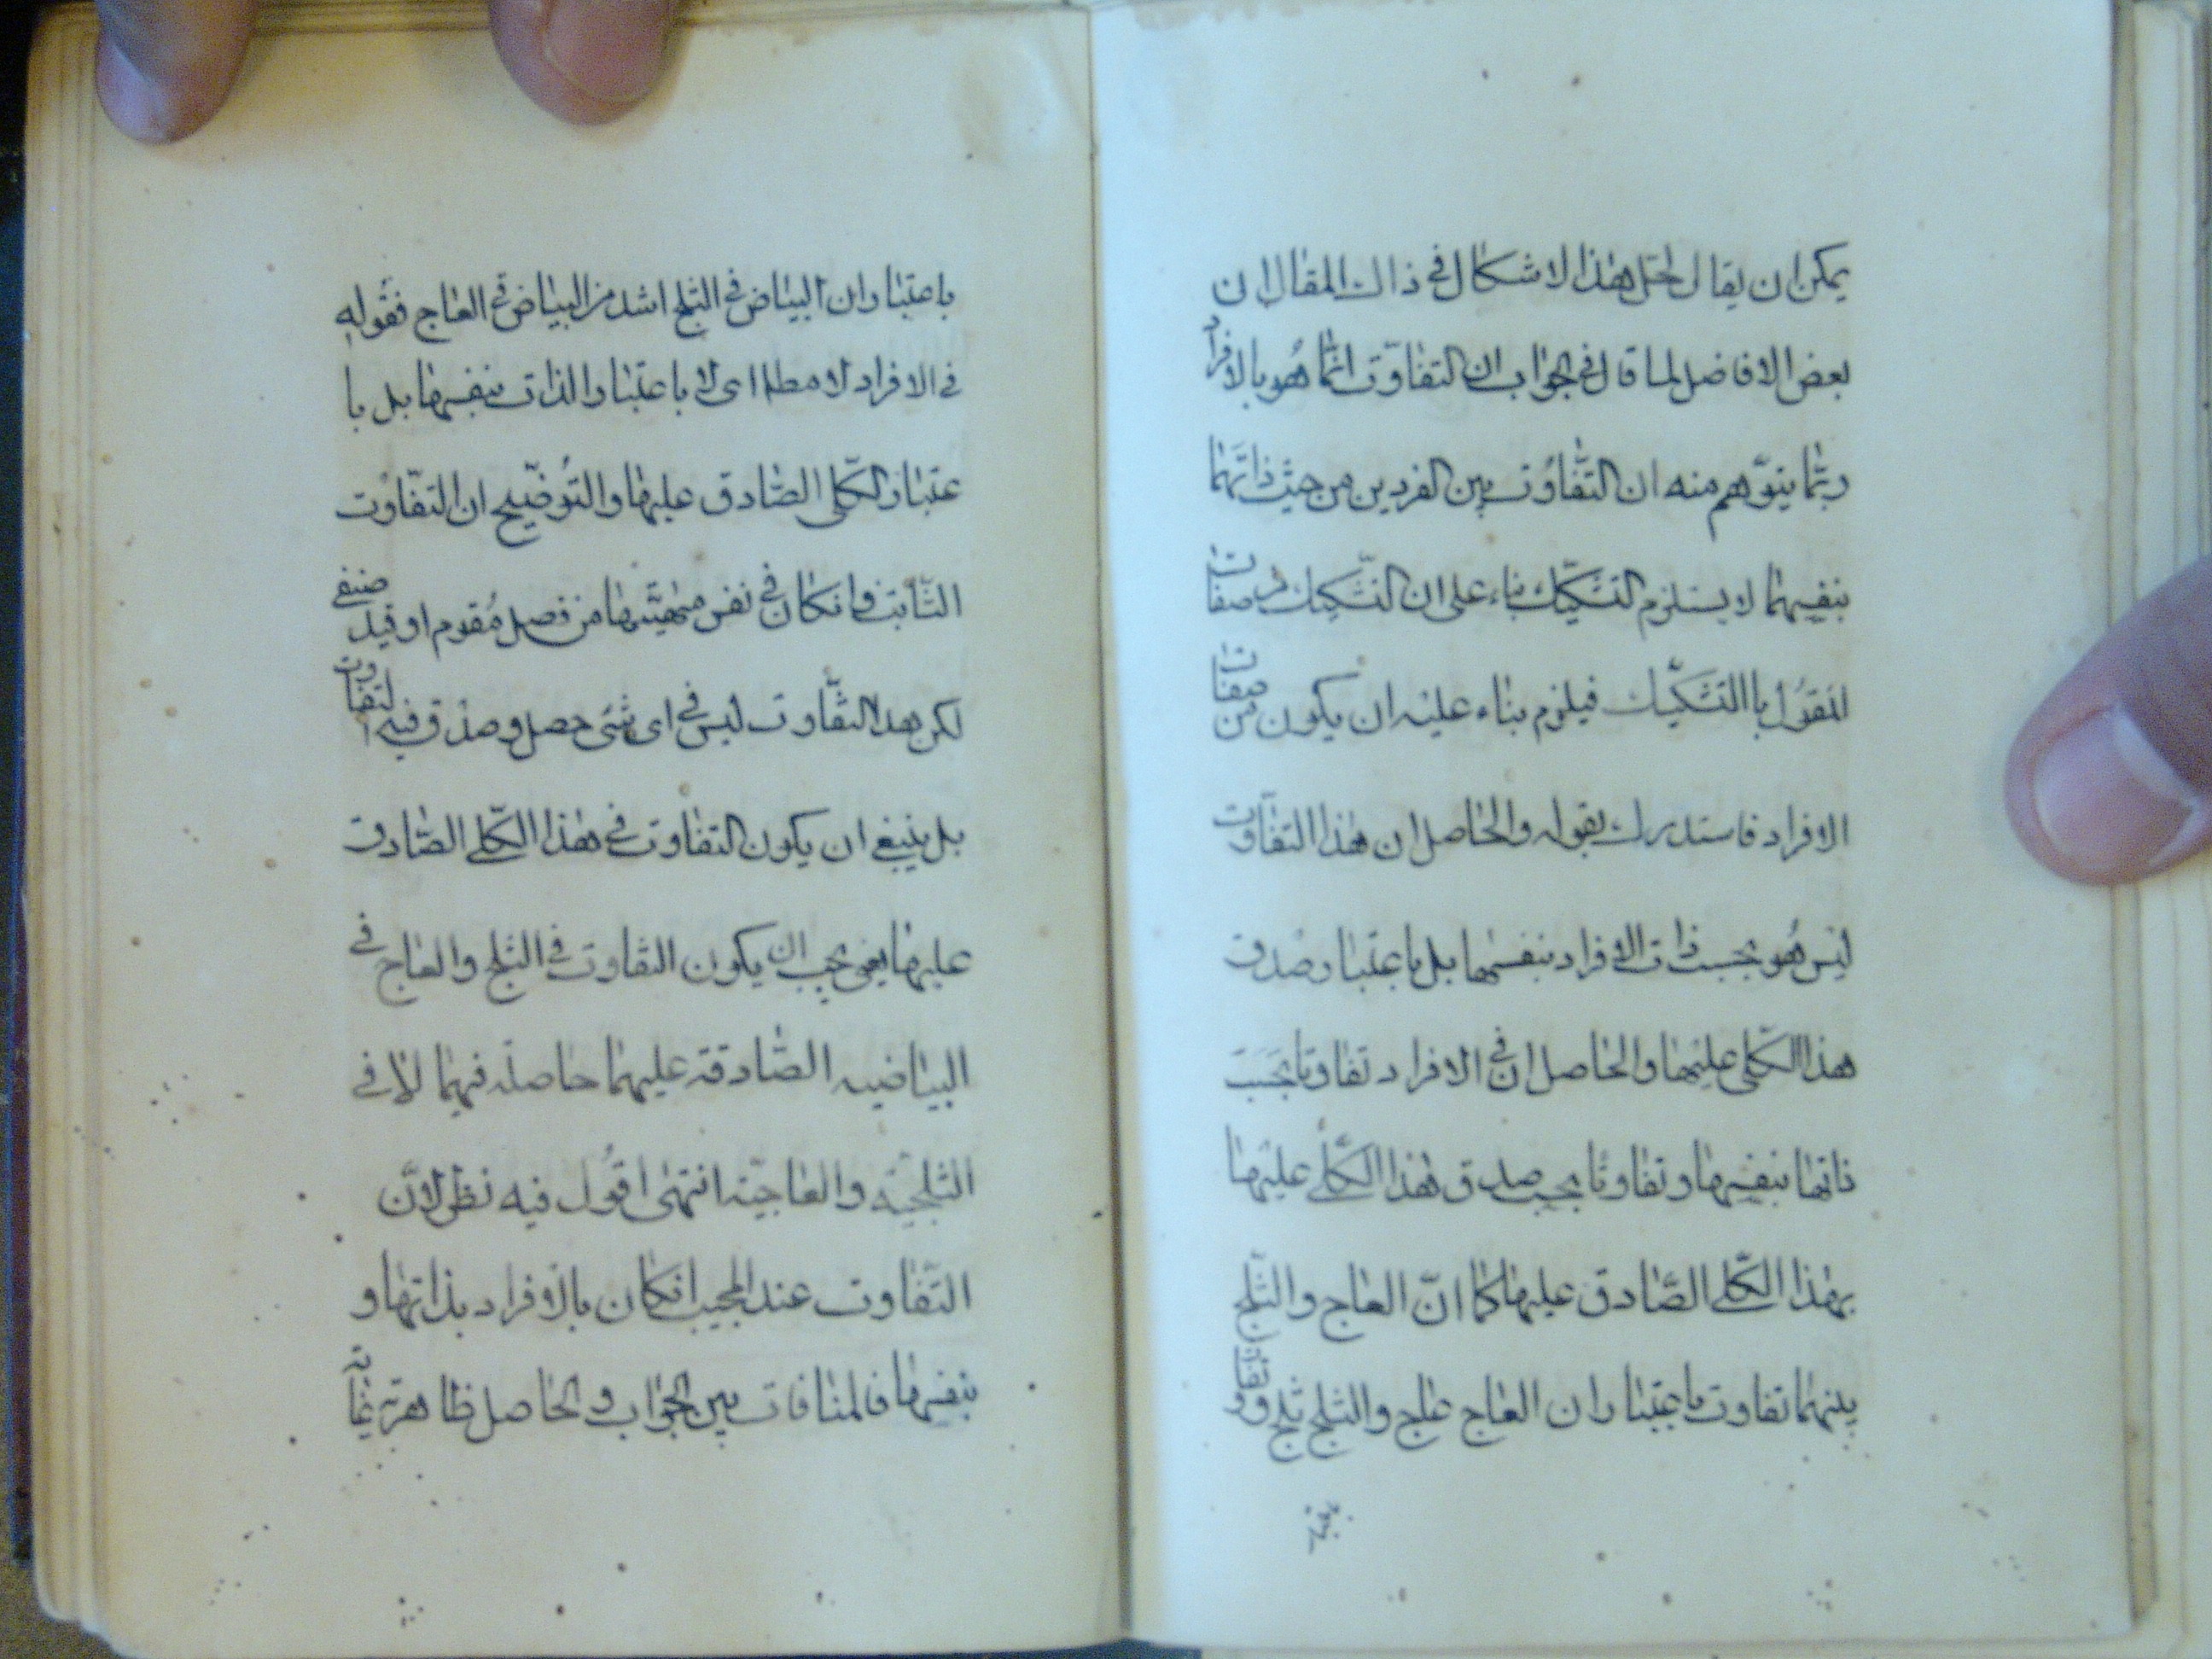 يمكن ان يقال لحل هذا الاشكال في ذالك المقال ان
بعض الافاضل لما قال في الجواب ان التفاوت انما هو بالافراد
ربما يتوهم منه ان التفاوت بين الفردين من حيث ذاتهما
بنفسهما لا يستلزم التشكيك بناء على ان التشكيك من صفات
المقول باالتشكيك فيلزم بناء عليه ان يكون من صفات
الافراد فاستدرك بقوله والحاصل ان هذا التفاوت
ليس هو بحسب ذات الافراد بنفسها بل باعتبار صدق
هذا الكلى عليها والحاصل ان في الافراد تفاوتا بحسب
ذاتها بنفسها وتفاوتا بحسب صدق هذا الكلى عليها
بهذا الكلى الصادق عليها كما ان العاج والثلج
بينهما تفاوت باعتبار ان العاج عاج والثلج ثلج وتفاوت
باعتبار ان البياض في الثلج اشد من البياض في العاج فقوله
في الافراد لا مطلقا اى لا باعتبار الذات بنفسها بل با
عتبار الكلى الصادق عليها والتوضيح ان التفاوت
الثابت وانكان في نفس مهيتها من فصل مقوم او قيد صنفى
لكن هذا التفاوت ليس في اى شئ حصل وصدق فيه التفاوت
بل ينبغى ان يكون التفاوت في هذا الكلى الصادق
عليها يعنى يجب ان يكون التفاوت في الثلج والعاج في
البياضيه الصادقة عليهما حاصلة فيهما لا في
الثلجية والعاجية انتهى اقول فيه نظر لان
التفاوت عند المجيب انكان بالافراد بذاتها و
بنفسها فالمنافات بين الجواب والحاصل ظاهرة غاية